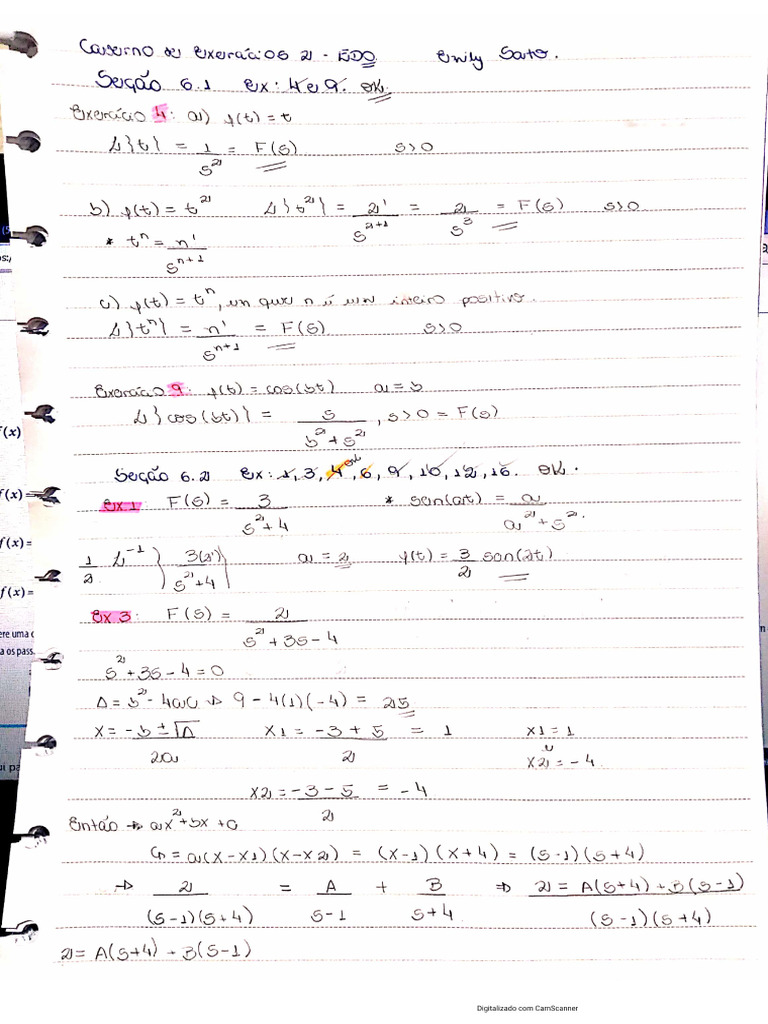 Caderno de Exercícios 2 - EDO. Emily Sato.
Secção 6.1 Ex: 4 e 9. OK.
Exercício 4: a) f(t) = t
L{t} = 1/s² = F(s) s>0
b) f(t) = t² L{t²} = 2!/s^(2+1) = 2/s³ = F(s) s>0
* tⁿ = n!/s^(n+1)
c) f(t) = tⁿ, em que n é um inteiro positivo.
L{tⁿ} = n!/s^(n+1) = F(s) s>0
Exercício 9: f(t) = cos(bt) a = b
L{cos(bt)} = s/(b²+s²), s>0 = F(s)
Secção 6.2 Ex: 1, 3, 4, 6, 9, 10, 12, 16. OK.
Ex 1 F(s) = 3/(s²+4) * sen(at) = a/(a²+s²).
1/2 L⁻¹{3(2)/(s²+4)} a = 2 f(t) = 3/2 sen(2t)
Ex 3: F(s) = 2/(s²+3s-4)
s²+3s-4=0
Δ = b²-4ac → 9-4(1)(-4) = 25
x = -b±√Δ/2a x1 = -3+5/2 = 1 x1 = 1
x2 = -4
x2 = -3-5/2 = -4
Então → ax²+bx+c
↳ = a(x-x1)(x-x2) = (x-1)(x+4) = (s-1)(s+4)
⇒ 2/(s-1)(s+4) = A/s-1 + B/s+4 ⇒ 2 = A(s+4)+B(s-1)/(s-1)(s+4)
2 = A(s+4)+B(s-1)
f(x)
f(x) =
f(x) =
f(x) =
ere uma
a os pass
ui pa
Digitalizado com CamScanner